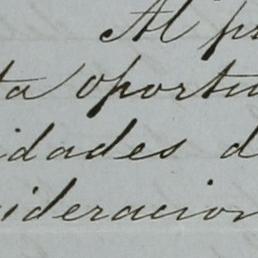 Al pr
ta oportu
idades d
ideracion